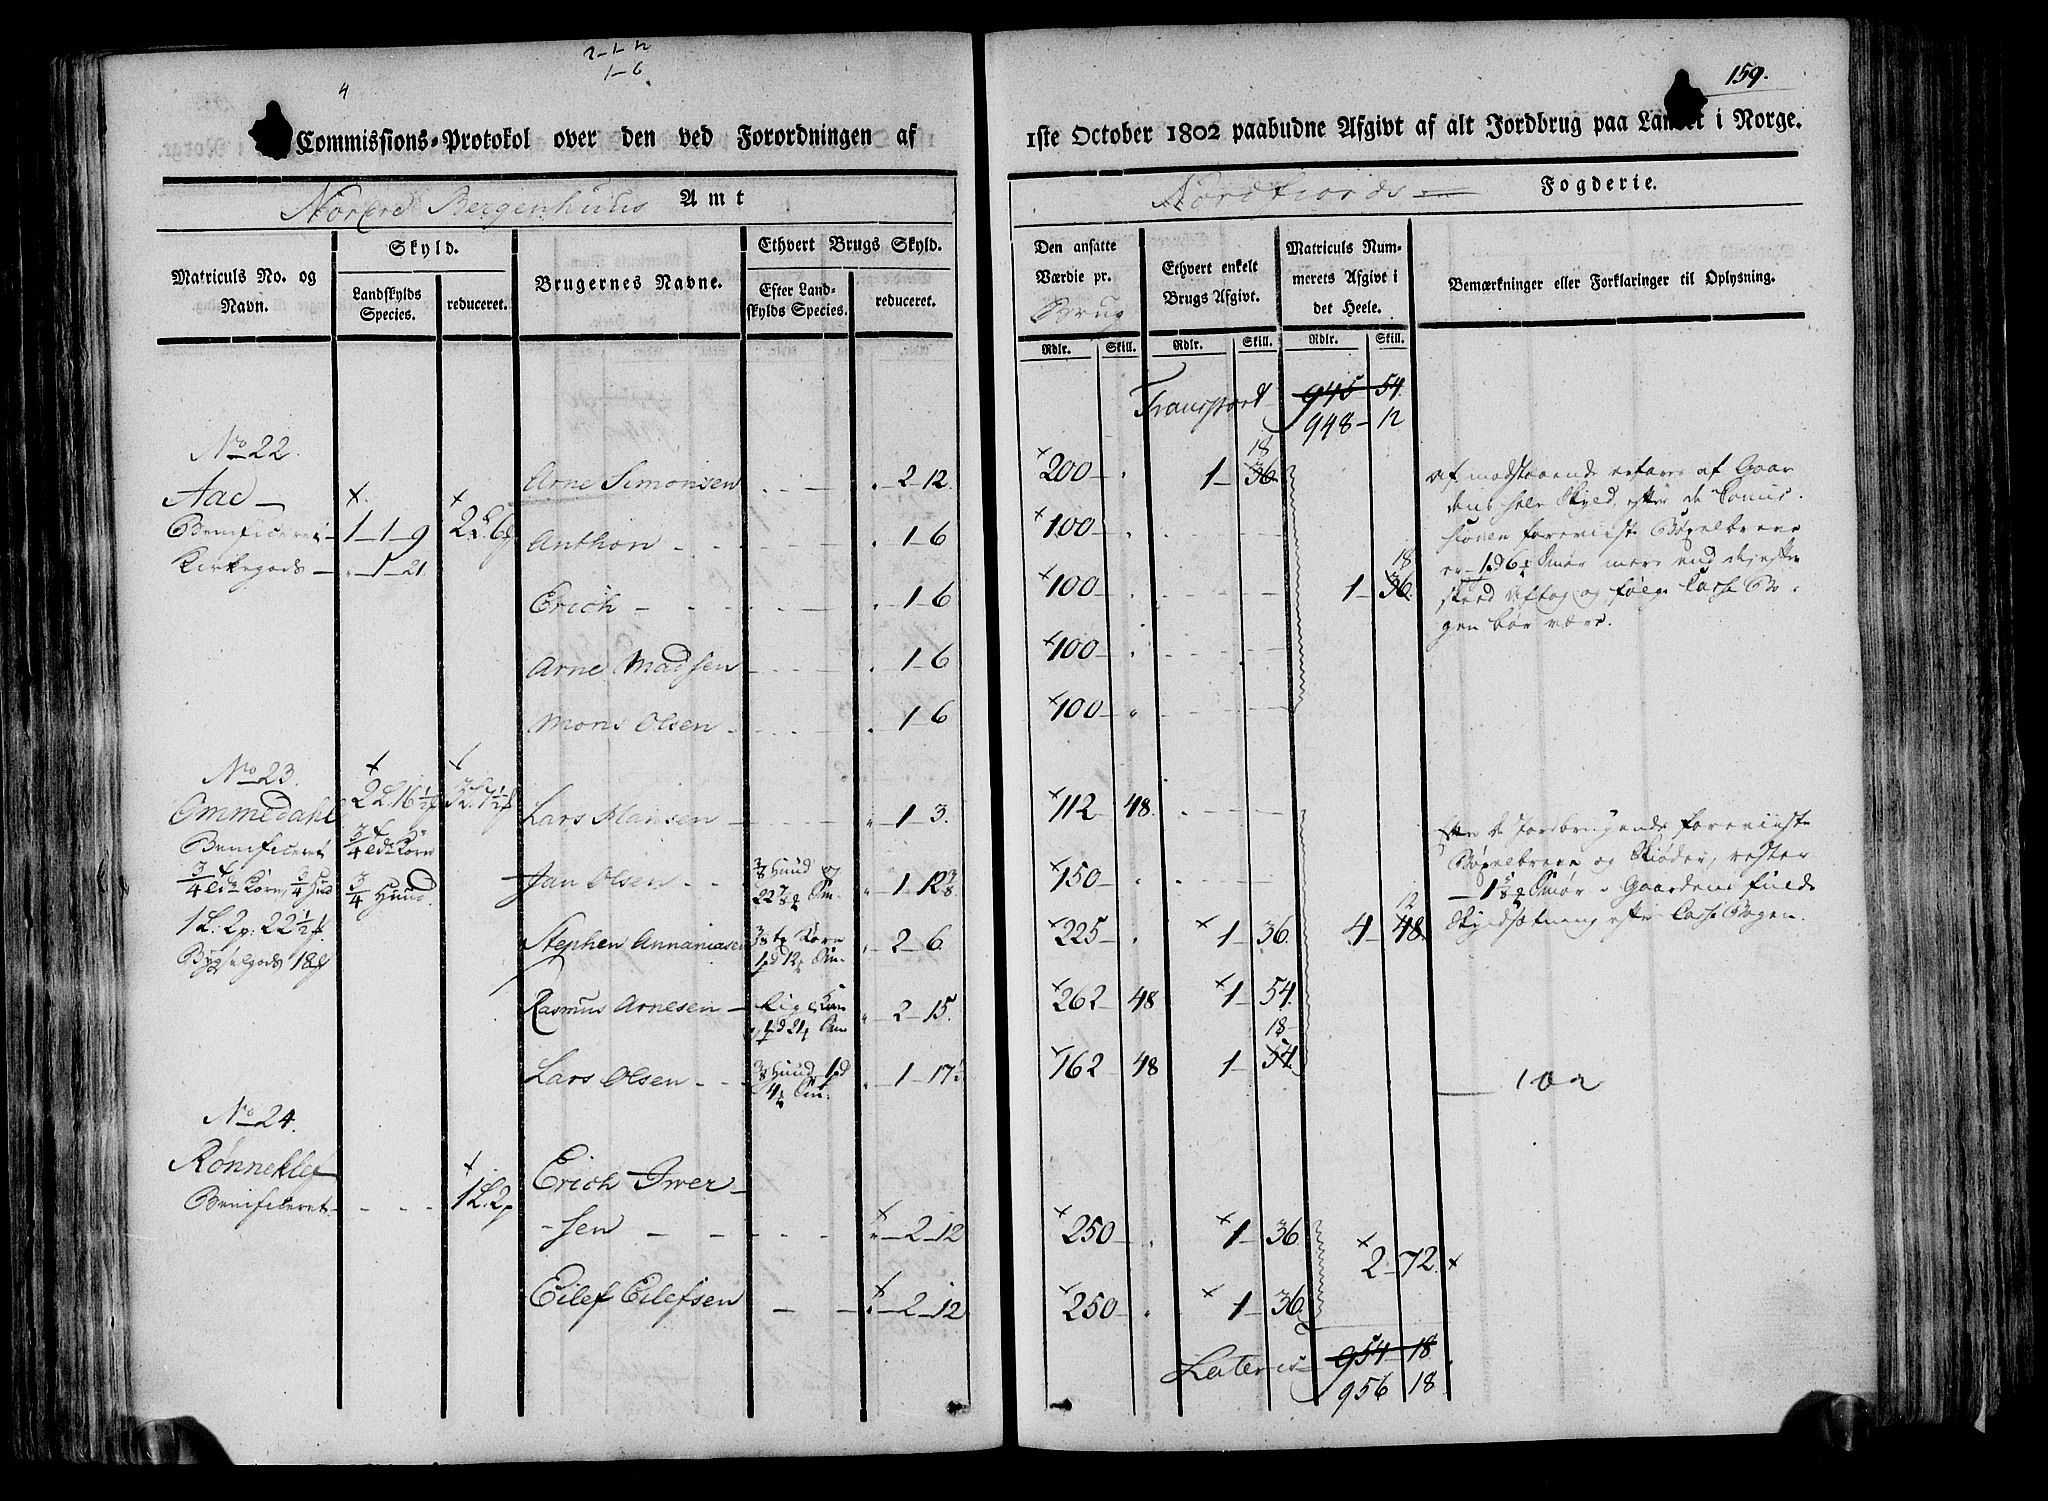 4
2-1-12
1-6
159.
Commissions-Protokol over den ved Forordningen af 1ste October 1802 paabudne Afgivt af alt Jordbrug paa Landet i Norge.
Nordre Bergenhuus Amt
Nordfiords Fogderie.
Matriculs No. og Navn.
Skyld.
Landskylds Species.
reduceret.
Brugernes Navne.
Ethvert Brugs Skyld.
Efter Landskylds Species.
reduceret.
Den ansatte Værdie pr. Brug
Ethvert enkelt Brugs Afgivt.
Matriculs Nummerets Afgivt i det Heele.
Bemærkninger eller Forklaringer til Oplysning.
Rdlr. Skill. Rdlr. Skill. Rdlr. Skill.
Transport 945 54.
948 - 12
No 22.
Aae
Beneficeret 1-1-9
Kirkegods - 1-21
Arne Simonsen 2-12. 200 1 - 36. 18
Anthon 1-6 100
Erich 1-6 100 1 - 36. 18
Arne Madsen 1-6 100
Mons Olsen 1-6 100
af modstaaende erfares af Gaar
dens hele Skyld, efter de Comis
sionen foreviiste Bøxelbreve
gen bør være.
No 23.
Ommedahl
Beneficeret
3/4 Korn
3/4 Huud.
Bygselgods 18
Lars Hansen 1-3. 112 48.
Jan Olsen 3/8 Huud og 1-12 3/8 150
Stephen Annaniasen 2-6. 225 1-36. 4-48. 12
Rasmus Arnesen 2-15. 262 48 1-54.
Lars Olsen 3/8 Huud 1-17 162 48 1-54. 18
de Jordbrugende foreviiste
Bøxelbreve og Skiøder, rester
Smør i Gaardens fulde
Skyldsætning efter Carse Bogen.
No 24.
Rønneklef
Beneficeret 1 L. 2
Erich Iver-
-sen 2-12 250 1-36.
2-72.
Eilef Eilefsen 2-12 250 1-36.
Lateris 954-18
956 18